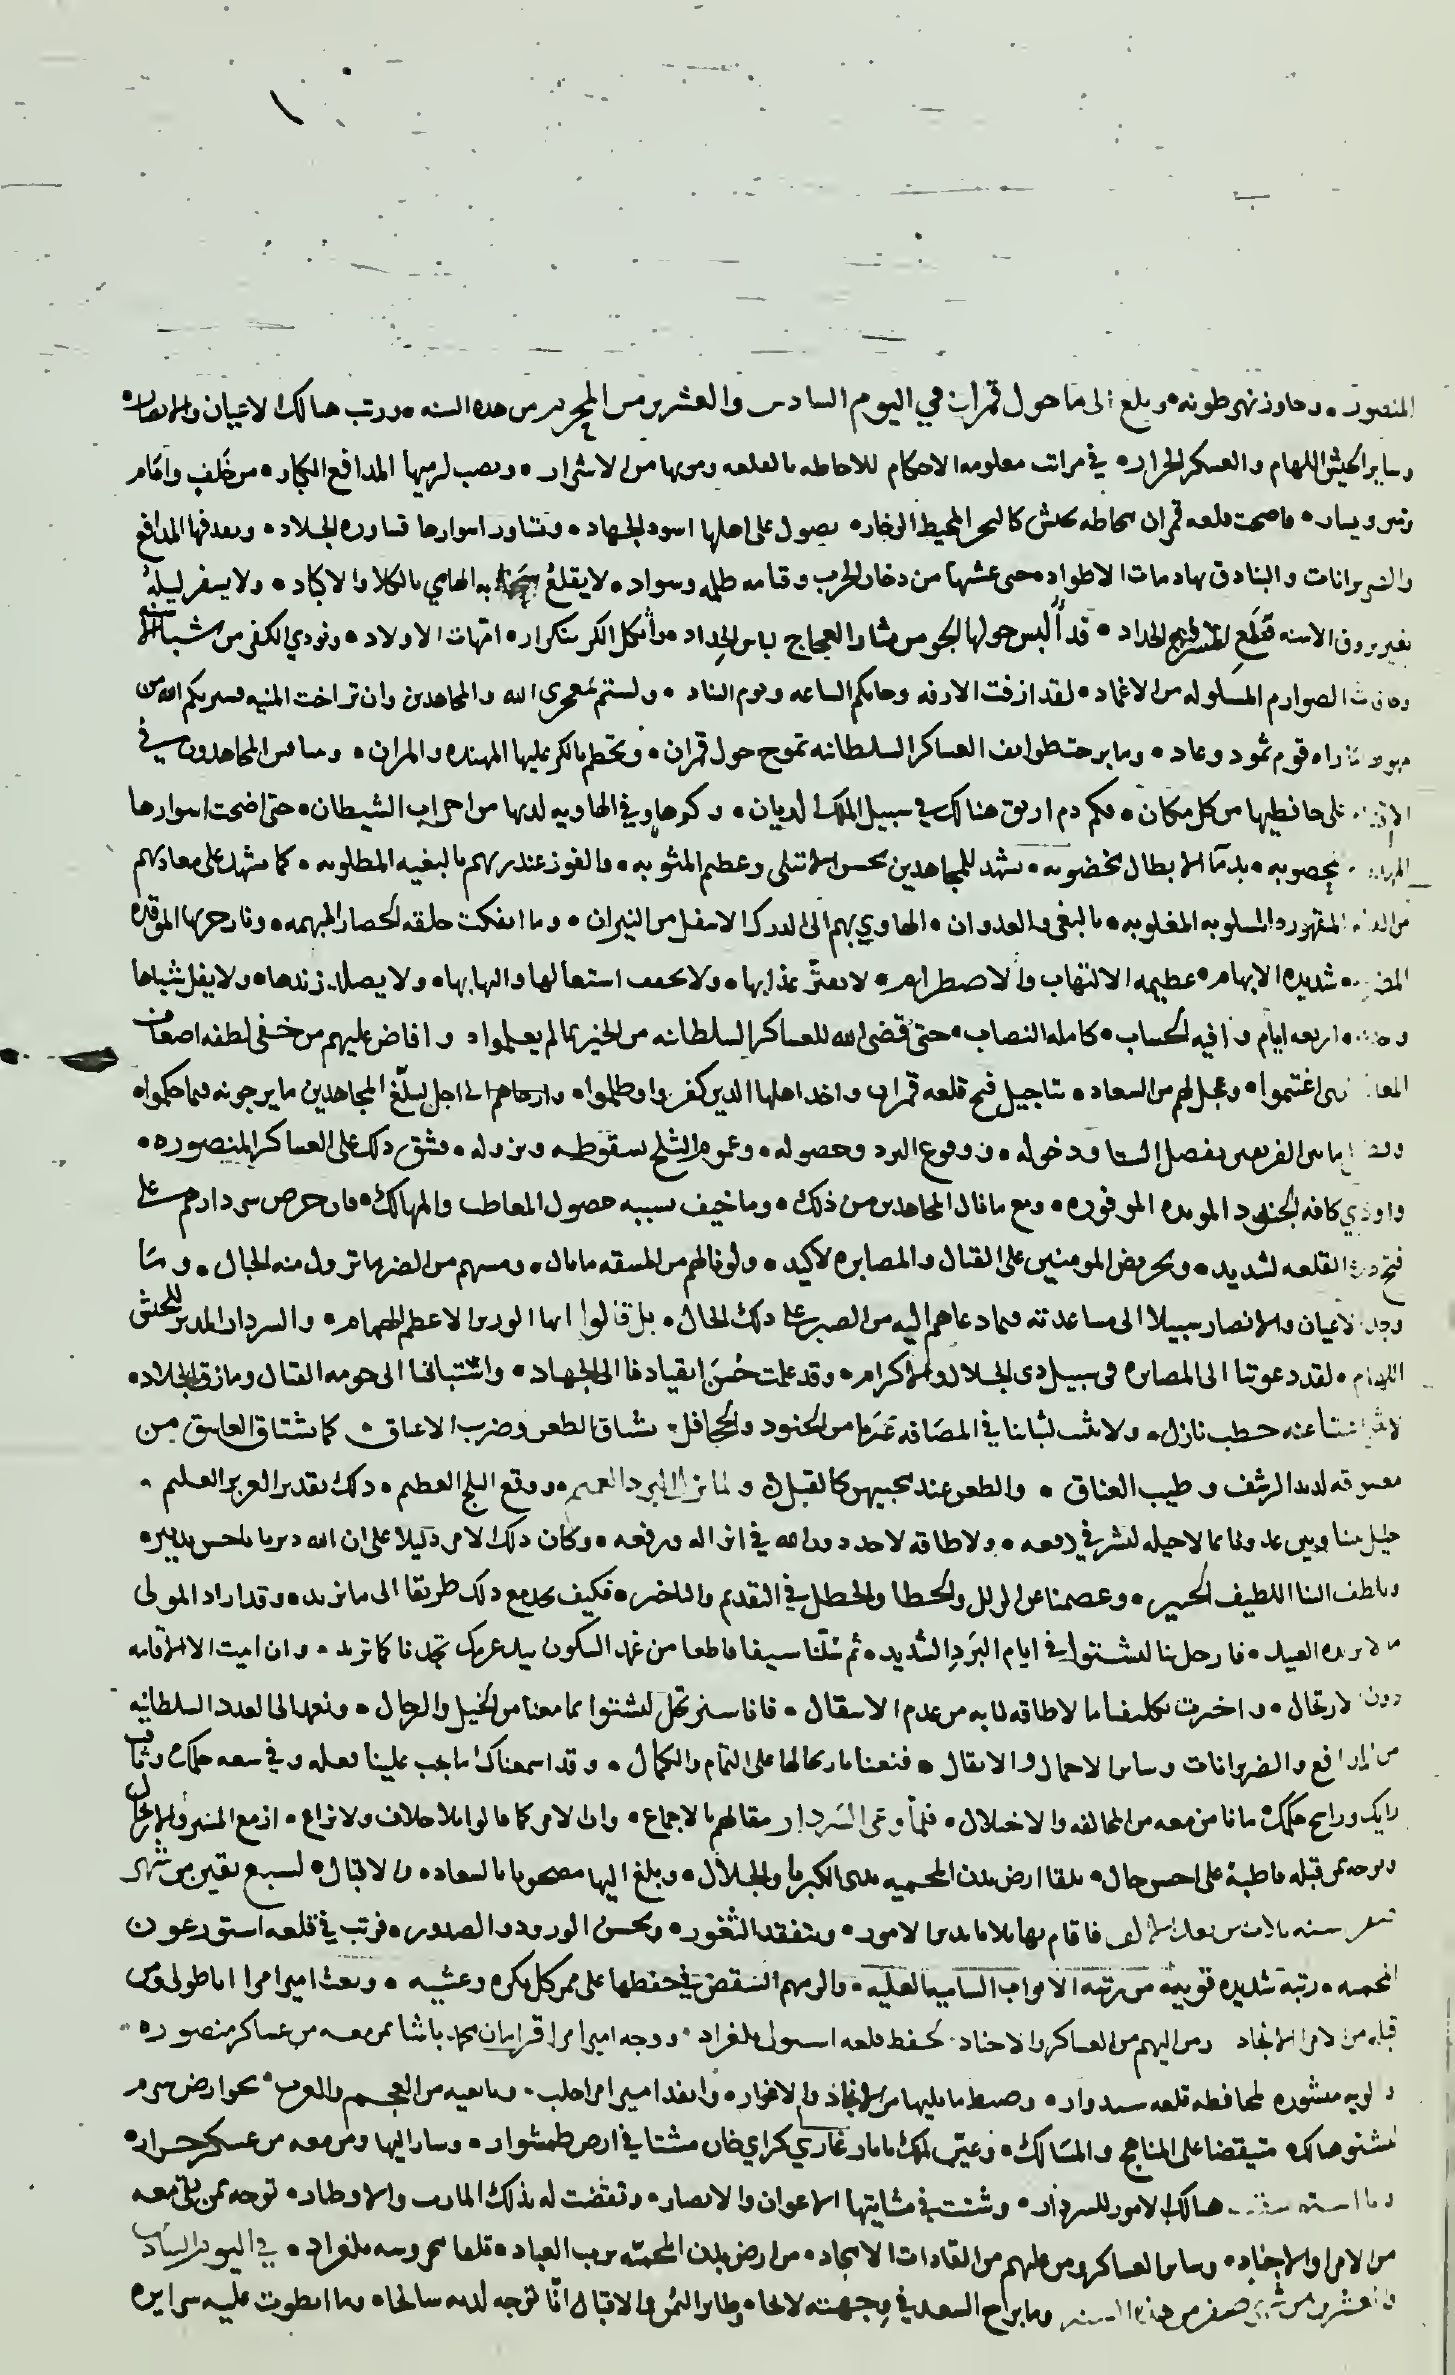 المنصوره وجاوز نهر طونه وبلغ الى ما حول قمران في اليوم السادس والعشرين من المحرم من هذه السنه ورتب هنالك الاعيان والانصار
وساير الجيش اللهام والعسكر الجرار في مراتب معلومه الاحكام للاحاطه بالقلعه ومن بها من الاشرار ونصب لرميها المدافع الكبار من خلف وامام
ويمين ويسار فاصبحت قلعه قمران محاطه بجيش كالبحر المحيط الزخار يصول على اهلها اسود الجهاد وتساور اسوارها قساوره الجلاد ويقذفها المدافع
والضربزانات والبنادق بهادمات الاطواد حتى غشيها من دخان الحرب وقتامه ظلمه وسواد لا يقلع به الهامي بالكلا والاكباد ولا يسفر ليله
بغير بروق الاسنه قطع الحداد قد البس حولها الجو من مثار العجاج لباس الحداد واثكل الكر بتكرار امهات الاولاد ونودي الكفر من
الصوارم المسلوله من الاغماد لقد ازفت الازفه وجاتكم الساعه ويوم التناد ولستم بمعجزي الله والمجاهدين وان تراخت المنيه فسيريكم الله من
قوم ثمود وعاد وما برحت طوايف العساكر السلطانيه تموج حول قمران وتحطم بالكر عليها المهنده والمران المجاهدون في
على حافظيها من كل مكان فكم دم اريق هنالك في سبيل الملك الديان وكم هاو في الهاويه لديها من احزاب الشيطان حتى اضحت اسوارها
بدما الابطال مخضوبه تشهد للمجاهدين بحسن الابتلى وعظيم المثوبه والفوز عند ربهم بالبغيه المطلوبه كما تشهد على معاديهم
المقهوره المسلوبه المغلوبه بالبغي والعدوان الهاوي بهم الى الدرك الاسفل من النيران وما انفكت حلقه الحصار المبهمه ونار حربها الموقده
شديده الابهام عظيمه الالتهاب والاضطرام لا يفتر عذابها ولا يخفف اشتعالها والهابها ولا يصلد زندها ولا يفل شباها
اربعه ايام وافيه الحساب كامله النصاب حتى قضى الله للعساكر السلطانيه من الخير بما لم يعلموا وافاض عليهم من خفي لطفه اضعاف
اغتموا وعجل لهم من السعاده بتاجيل فتح قلعه قمران واخذ اهلها الذين كفروا وظلموا وارجاهم الى اجل يبلغ المجاهدين ما يرجونه فيما حكموا
ما بين الفريقين بفصل الشتا ودخوله ووقوع البرد وحصوله وعموم الثلج بسقوطه ونزوله فشق ذلك على العساكر المنصوره
واوذي كافه الجنود المويده الموفوره ومع ما نال المجاهدين من ذلك وما خيف بسببه حصول المعاطب والمهالك فان حرص سردارهم على
فتح القلعه لشديد وتحريض المومنين على القتال والمصابره لاكيد ولو نالهم من المشقه ما نال ومسهم من الضر ما تزول منه الجبال وما
وجد الاعيان والانصار سبيلا الى مساعدته فيما دعاهم اليه من الصبر على ذلك الحال بل قالوا ايها الوزير الاعظم الهمام والسردار المدبر للجيش
اللهام لقد دعوتنا الى المصابره في سبيل ذي الجلال والاكرام وقد علمت حسن انقيادنا الى الجهاد واستباقنا الى حومه القتال ومازق الجلاد
لا عنه خطب نازل ولا لثباتنا في المصافه غيرنا من الجنود والجحافل نشتاق الطعن وضرب الاعناق كما يشتاق العاشق من
معشوقه لذيذ الرشف وطيب العناق والطعن عند محبيهن كالقبل ولما نزل البرد العميم ووقع الثلج العظيم ذلك تقدير العزيز العليم
حيل بيننا وبين عدونا بما لا حيله لبشر في دفعه ولا طاقه لاحد دون الله في ازاله ورفعه وكان ذلك الامر دليلا على ان الله دبرنا باحسن تدبير
ولطف بنا اللطيف الخبير وعصمنا عن الزلل والخطا والخطل في التقديم والتاخير فكيف نجد مع ذلك طريقا الى ما نريد وقد اراد المولى
ما لا يريده العبيد فارحل بنا لنشتوا في ايام البرد الشديد ثم سلنا سيفا قاطعا من غمد السكون بيد عزمك تجدنا كما تريد وان ابيت الا الاقامه
دون الارتحال واخترت تكليفنا ما لا طاقه لنا به من عدم الانتقال فانا سنرتحل لنشتوا بما معنا من الخيل والرجال ونعمد الى العدد السلطانيه
من المدافع والضربزانات وساير الاحمال والاثقال فنعنا بارتحالها على التمام والكمال وقد اسمعناك ما يجب علينا فعله وفي سعه حلمك وثاقب
رايك وراجح حكمك مانا من معه من المخالفه والاختلال فلما وعى السردار مقالهم بالاجماع وان الامر كما قالوا بلا خلاف ولا نزاع ازمع المسير والارتحال
وتوجه بمن قبله قاطبة على احسن حال تلقا ارض بلدن المحميه بذي الكبريا والجلال وبلغ اليها مصحوبا بالسعاده والاقبال لسبع بقين من شهر
صفر سنه فاقام بها بالامور ويتفقد الثغور ويحسن الورود والصدور فرتب في قلعه استورغون
المحميه رتبة شديده قويه من رتبه الابواب الساميه العليه والزمهم التيقض في حفظها على ممر كل بكره وعشيه وبعث امير امرا اناطولي ومن
قبله من الامرا الانجاد ومن اليهم من العساكر والاجناد لحفظ قلعه بلغراد ووجه امير امرا قرامان محمد باشا بمن معه من عساكر منصوره
والويه منشوره لمحافظه قلعه وضبط ما يليها من الانجاد والاغوار وانفذ امير امرا حلب ومن تابعيه من العجم والعرب نحو ارض سرم
لمشتو هنالك متيقضا على المناهج والمسالك وعين لملك تاتار غازي كراي خان مشتا في ارض طمشوار وسار اليها ومن معه من عسكر جرار
هنالك الامور للسردار وشتت في مشاتيها الاعوان والانصار وتقضت له بذلك المارب والاوطار توجه بمن بقي معه
من الامرا والاجناد وساير العساكر ومن يليهم من القادات الامجاد من ارض بلدن المحميه برب العباد تلقا محروسه بلغراد في اليوم السادس
والعشرين من شهر صفر من هذه السنه وما برح السعد في وجهته لايحا وطاير اليمن والاقبال انا توجه لديه سانحا وما انطوت عليه سرايره